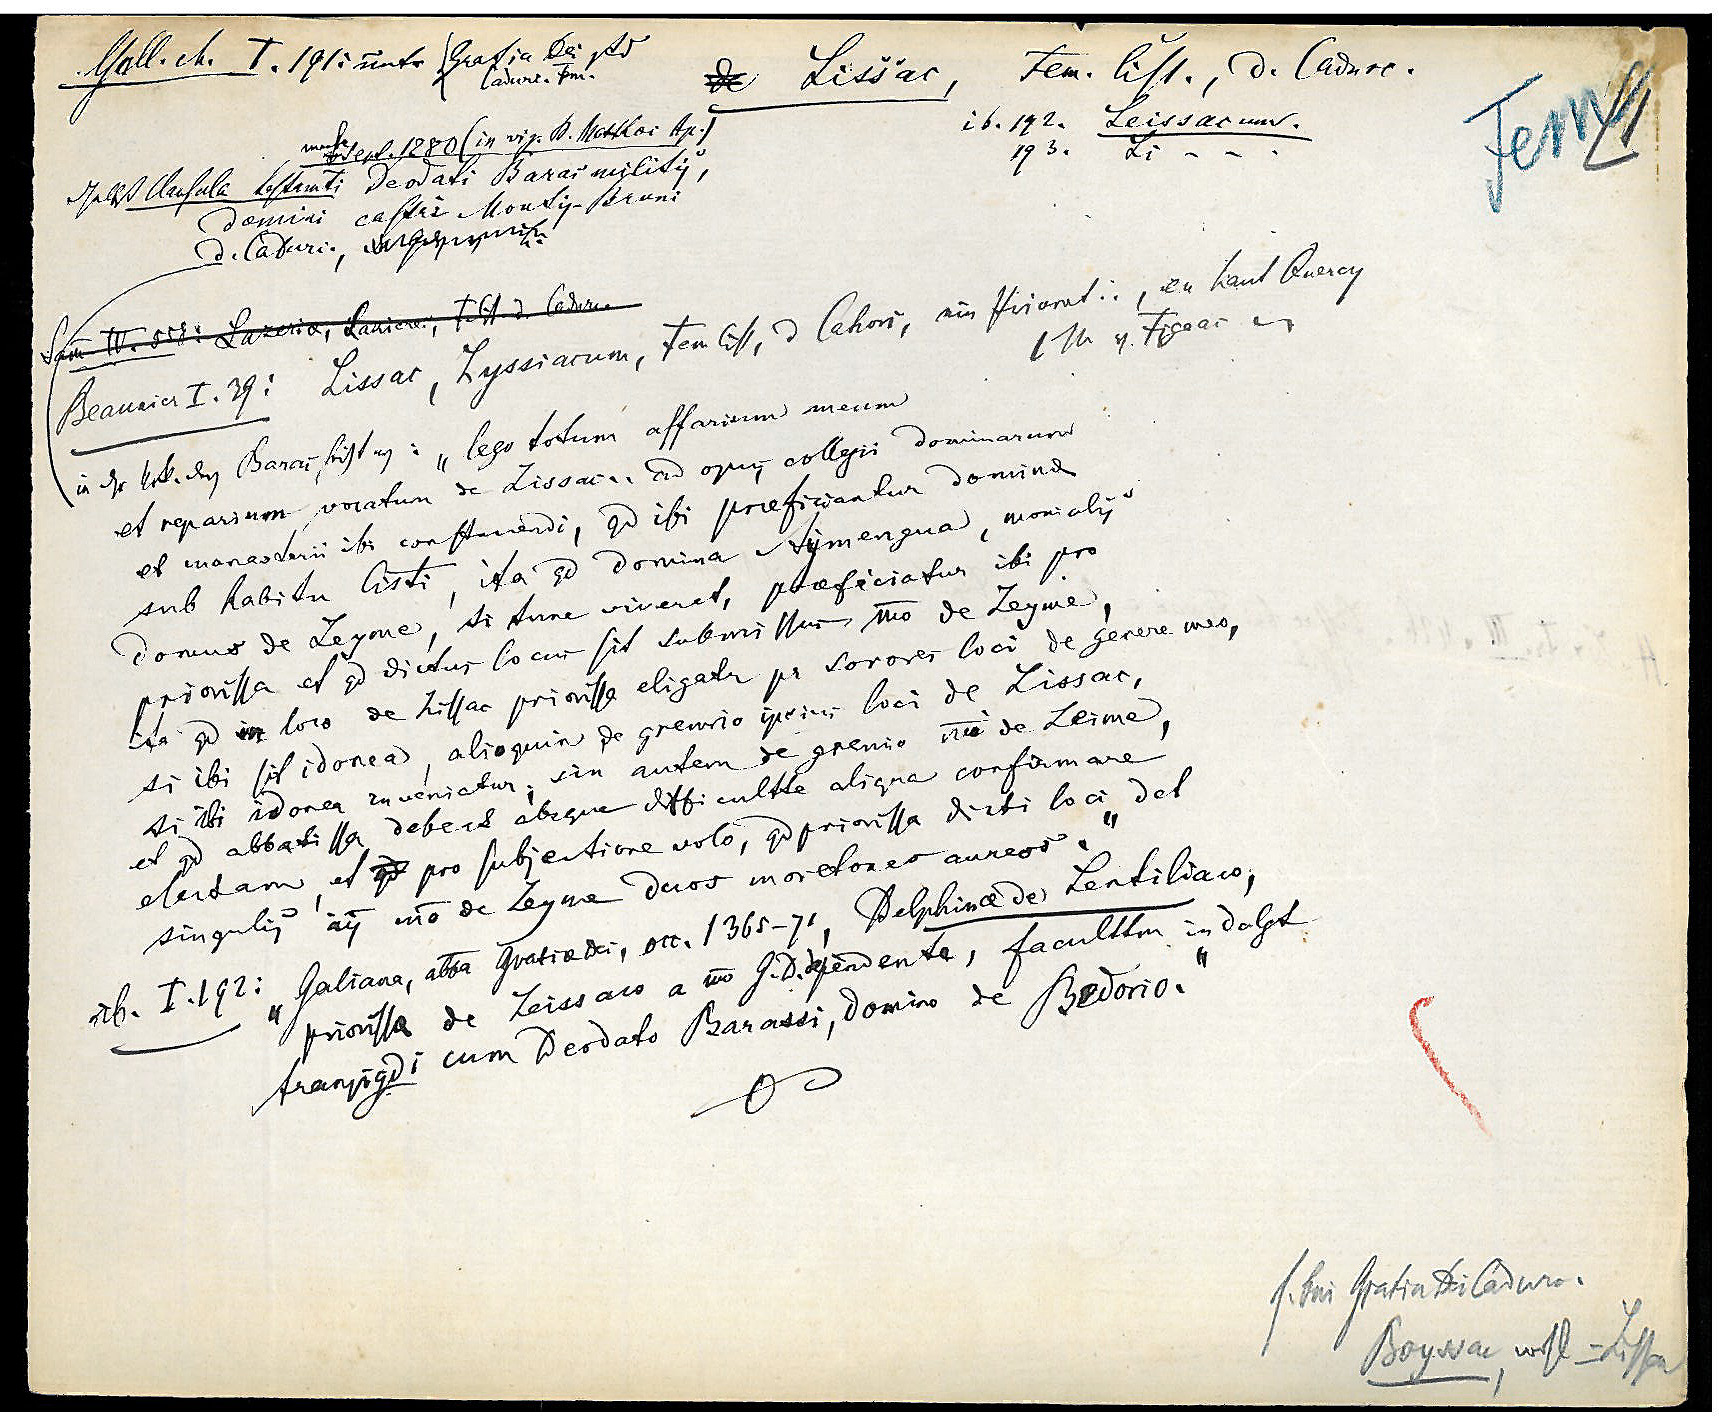 Gall. ch. I. 191: unter Gratia Dei
Cadurc. Fem.
de Lissac, Fem. Cist., D. Cadurc.
ib. 192. Leissacum.
193. Li - - -
Fem
Sept. 1280 (in vig. B. Matthaei Ap.)
Clausula testamti Deodati Baras militis,
domini castri Montis-Bruni
D. Cadurc.,
IV. Lazeria, D. Cadurc.
Beaunier I. 39: Lissac, Lyssiacum, Fem Cist, D Cahors, en haut Quercy
Figeac
in Baras : „lego totum affarium meum
et reparium vocatum de Lissac.. ad opus collegii dominarum
et monasterii ibi construendi, qd ibi praeficiantur dominae
sub habitu Cisti, ita qd domina Aymengua, monialis
domus de Leyme, si tunc viveret, praeficiatur ibi pro
priorissa et qd dictus locus sit submissus mo de Leyme,
ita qd in loco de Lissac priorissa eligatr pr sorores loci de genere meo,
si ibi sit idonea, alioquin de gremio ipsius loci de Lissac,
si ibi idonea inveniatur; sin autem de gremio mi de Leime,
et qd abbatissa debeat absque difficultte aliqua confirmare
electam, et qd pro subjectione volo, qd priorissa dicti loci det
singulis ais mo de Leyme duos moretones aureos."
ib. I. 192: „Galiana, abba Gratiae Dei, occ. 1365-71, Delphinae de Lentiliaco,
priorissae de Leissaco a mo G.D. dependente, faculttm indulget
transigdi cum Deodato Barassi, domino de Bedorio."
f. bei Gratia Dei Cadurc.
Boyssac, wohl = Lissac